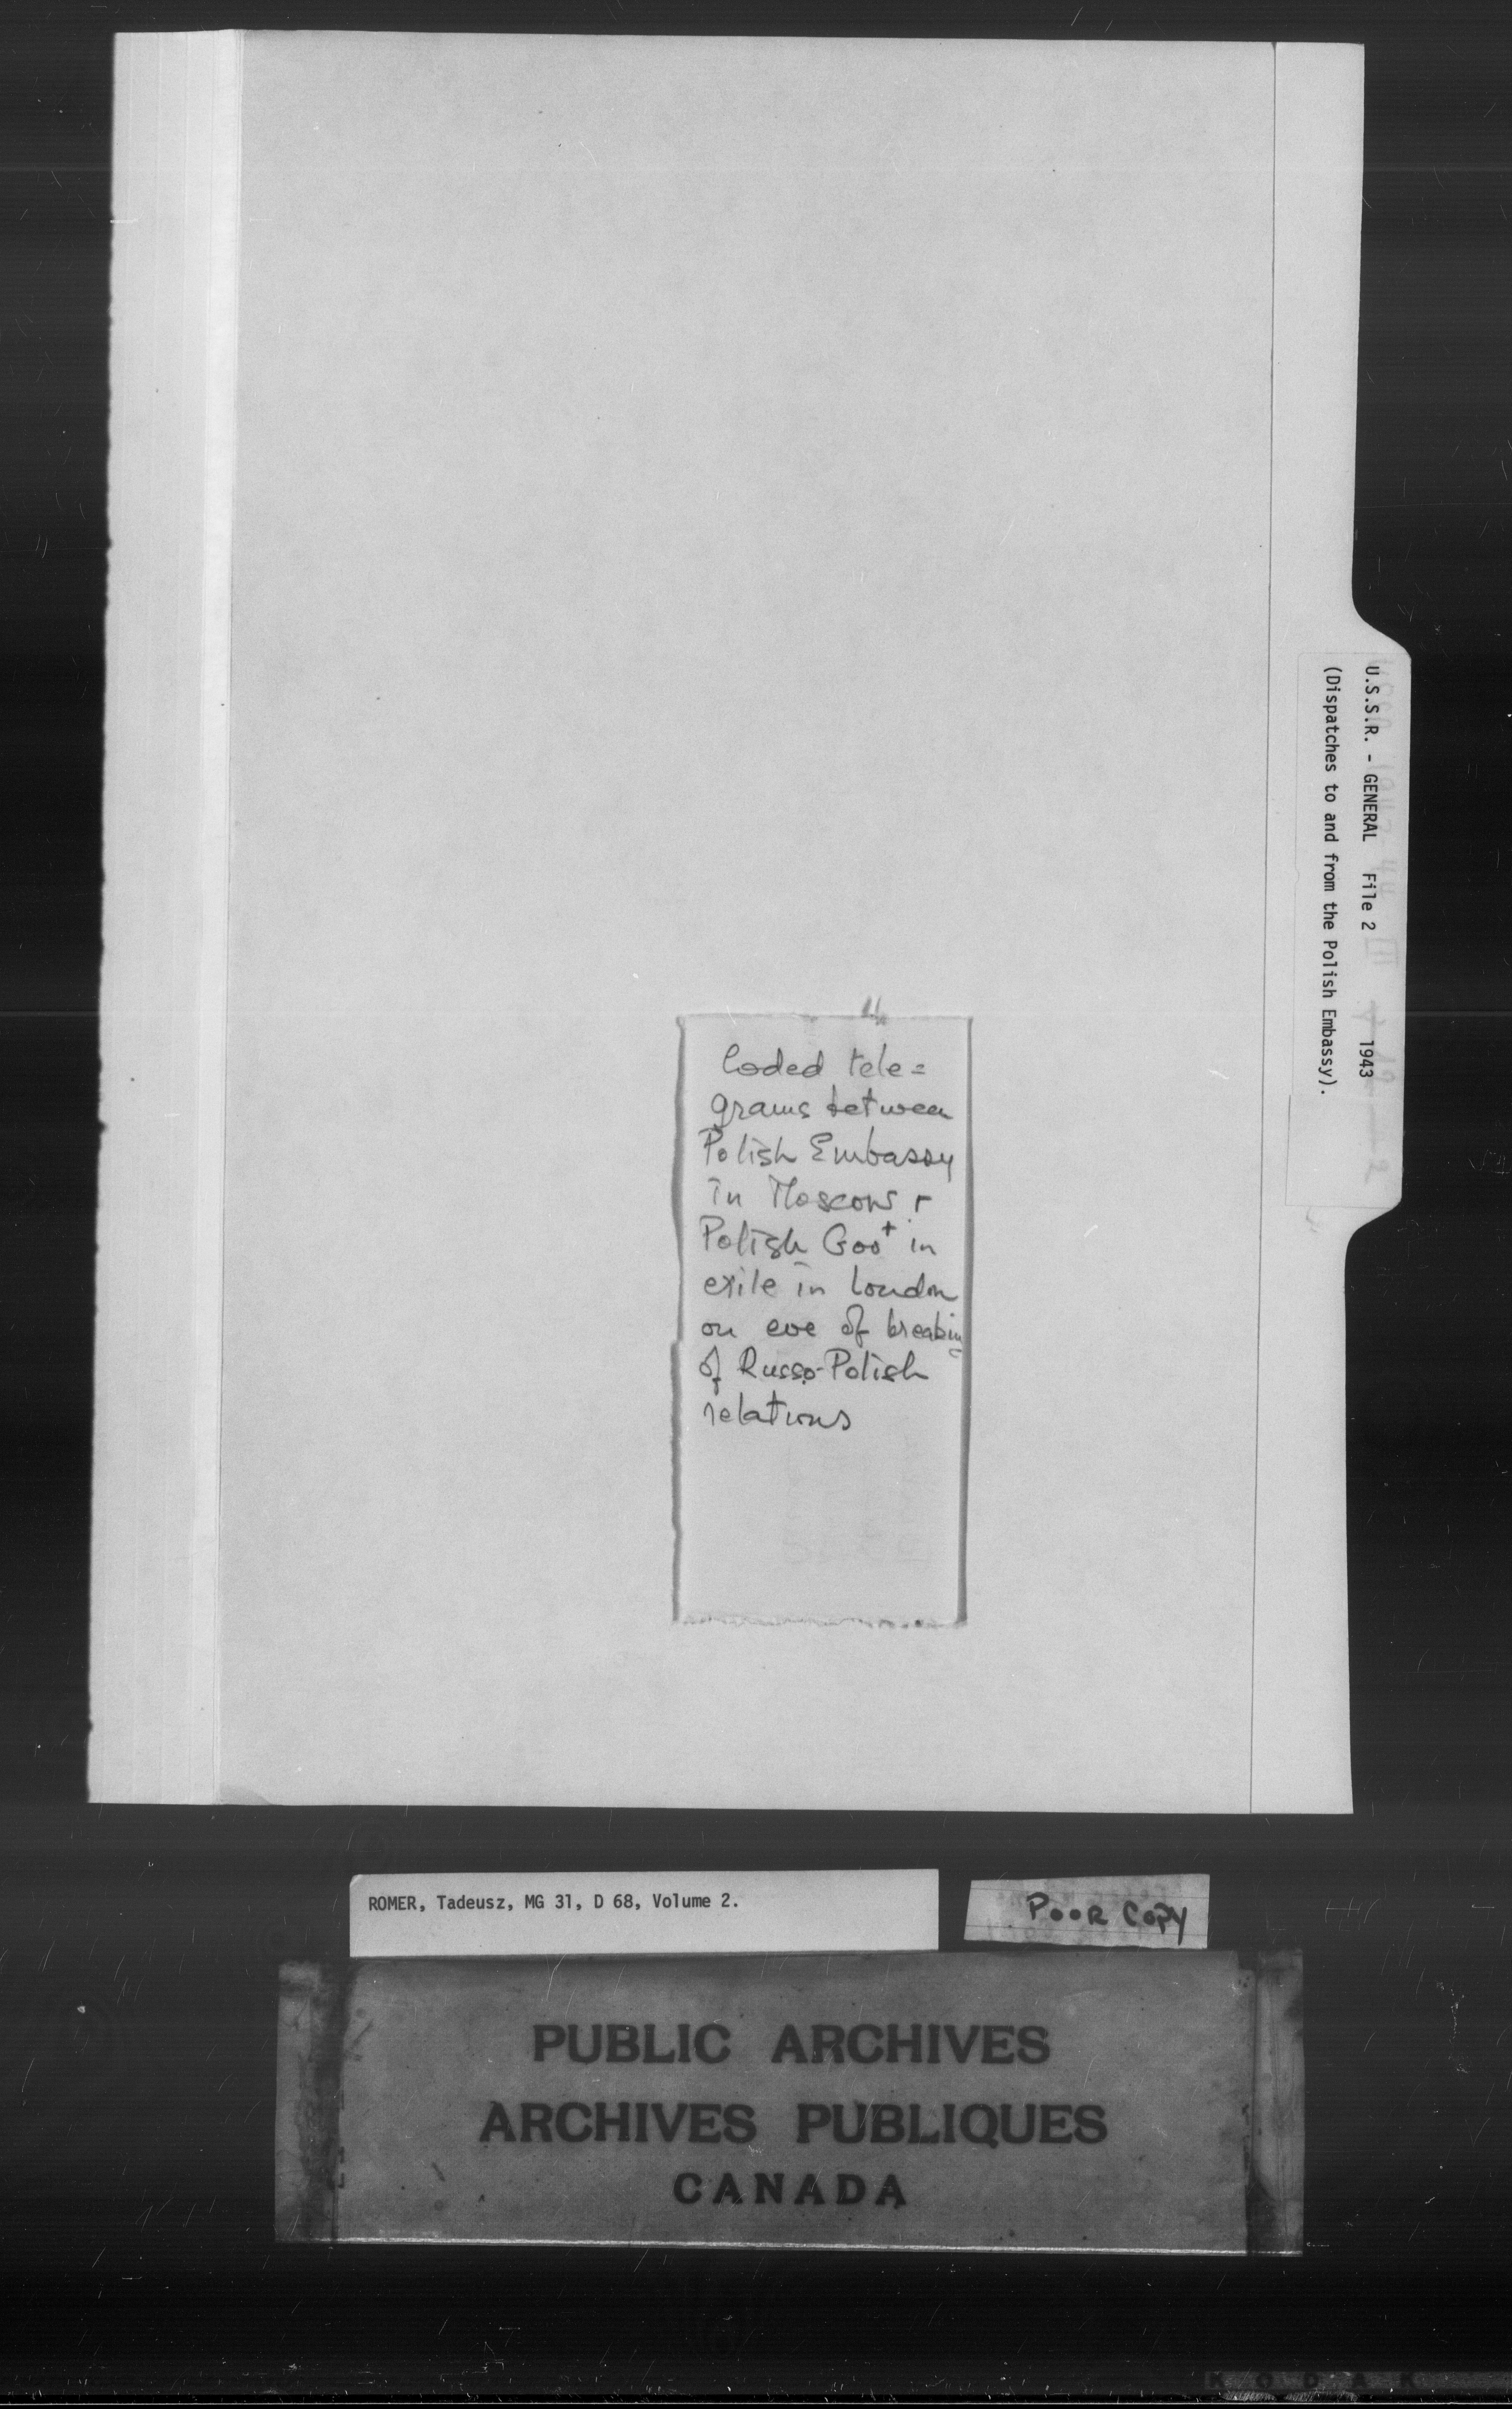 U.S.S.R. - GENERAL File 2 1943
(Dispatches to and from the Polish Embassy).
Coded tele=
grams between
Polish Embassy
in Moscow +
Polish Govt in
exile in London
on eve of breaking
of Russo-Polish
relations
ROMER, Tadeusz, MG 31, D 68, Volume 2.
POOR COPY
PUBLIC ARCHIVES
ARCHIVES PUBLIQUES
CANADA
KODAK